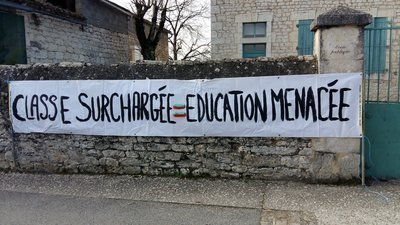 CLASSE SURCHARGÉE = EDUCATION MENACÉE